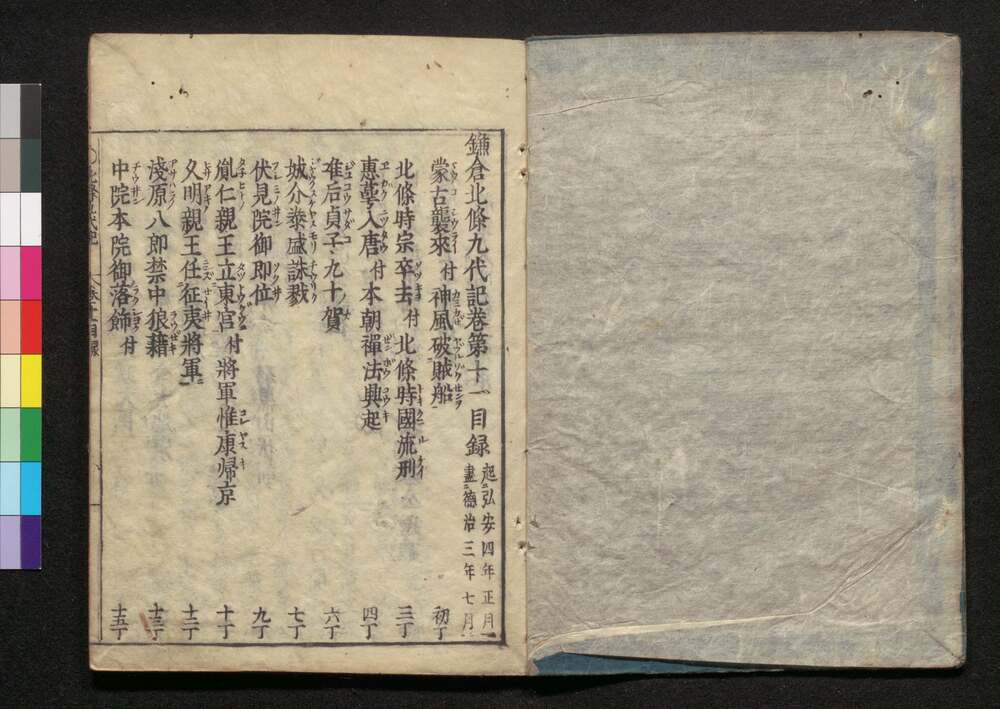 鎌倉北條九代記卷第十一目録 起弘安四年正月 盡德治三年七月
蒙古襲來付神風破賊船 初丁
北條時宗卒去付北條時國流刑 三丁
惠蕚入唐付本朝禪法興起 四丁
准后貞子九十賀 六丁
城介泰盛誅戮 七丁
伏見院御即位 九丁
胤仁親王立東宮付將軍惟康帰京 十丁
久明親王任征夷將軍 十二丁
淺原八郎禁中狼藉 十三丁
中院本院御落飾付 十五丁